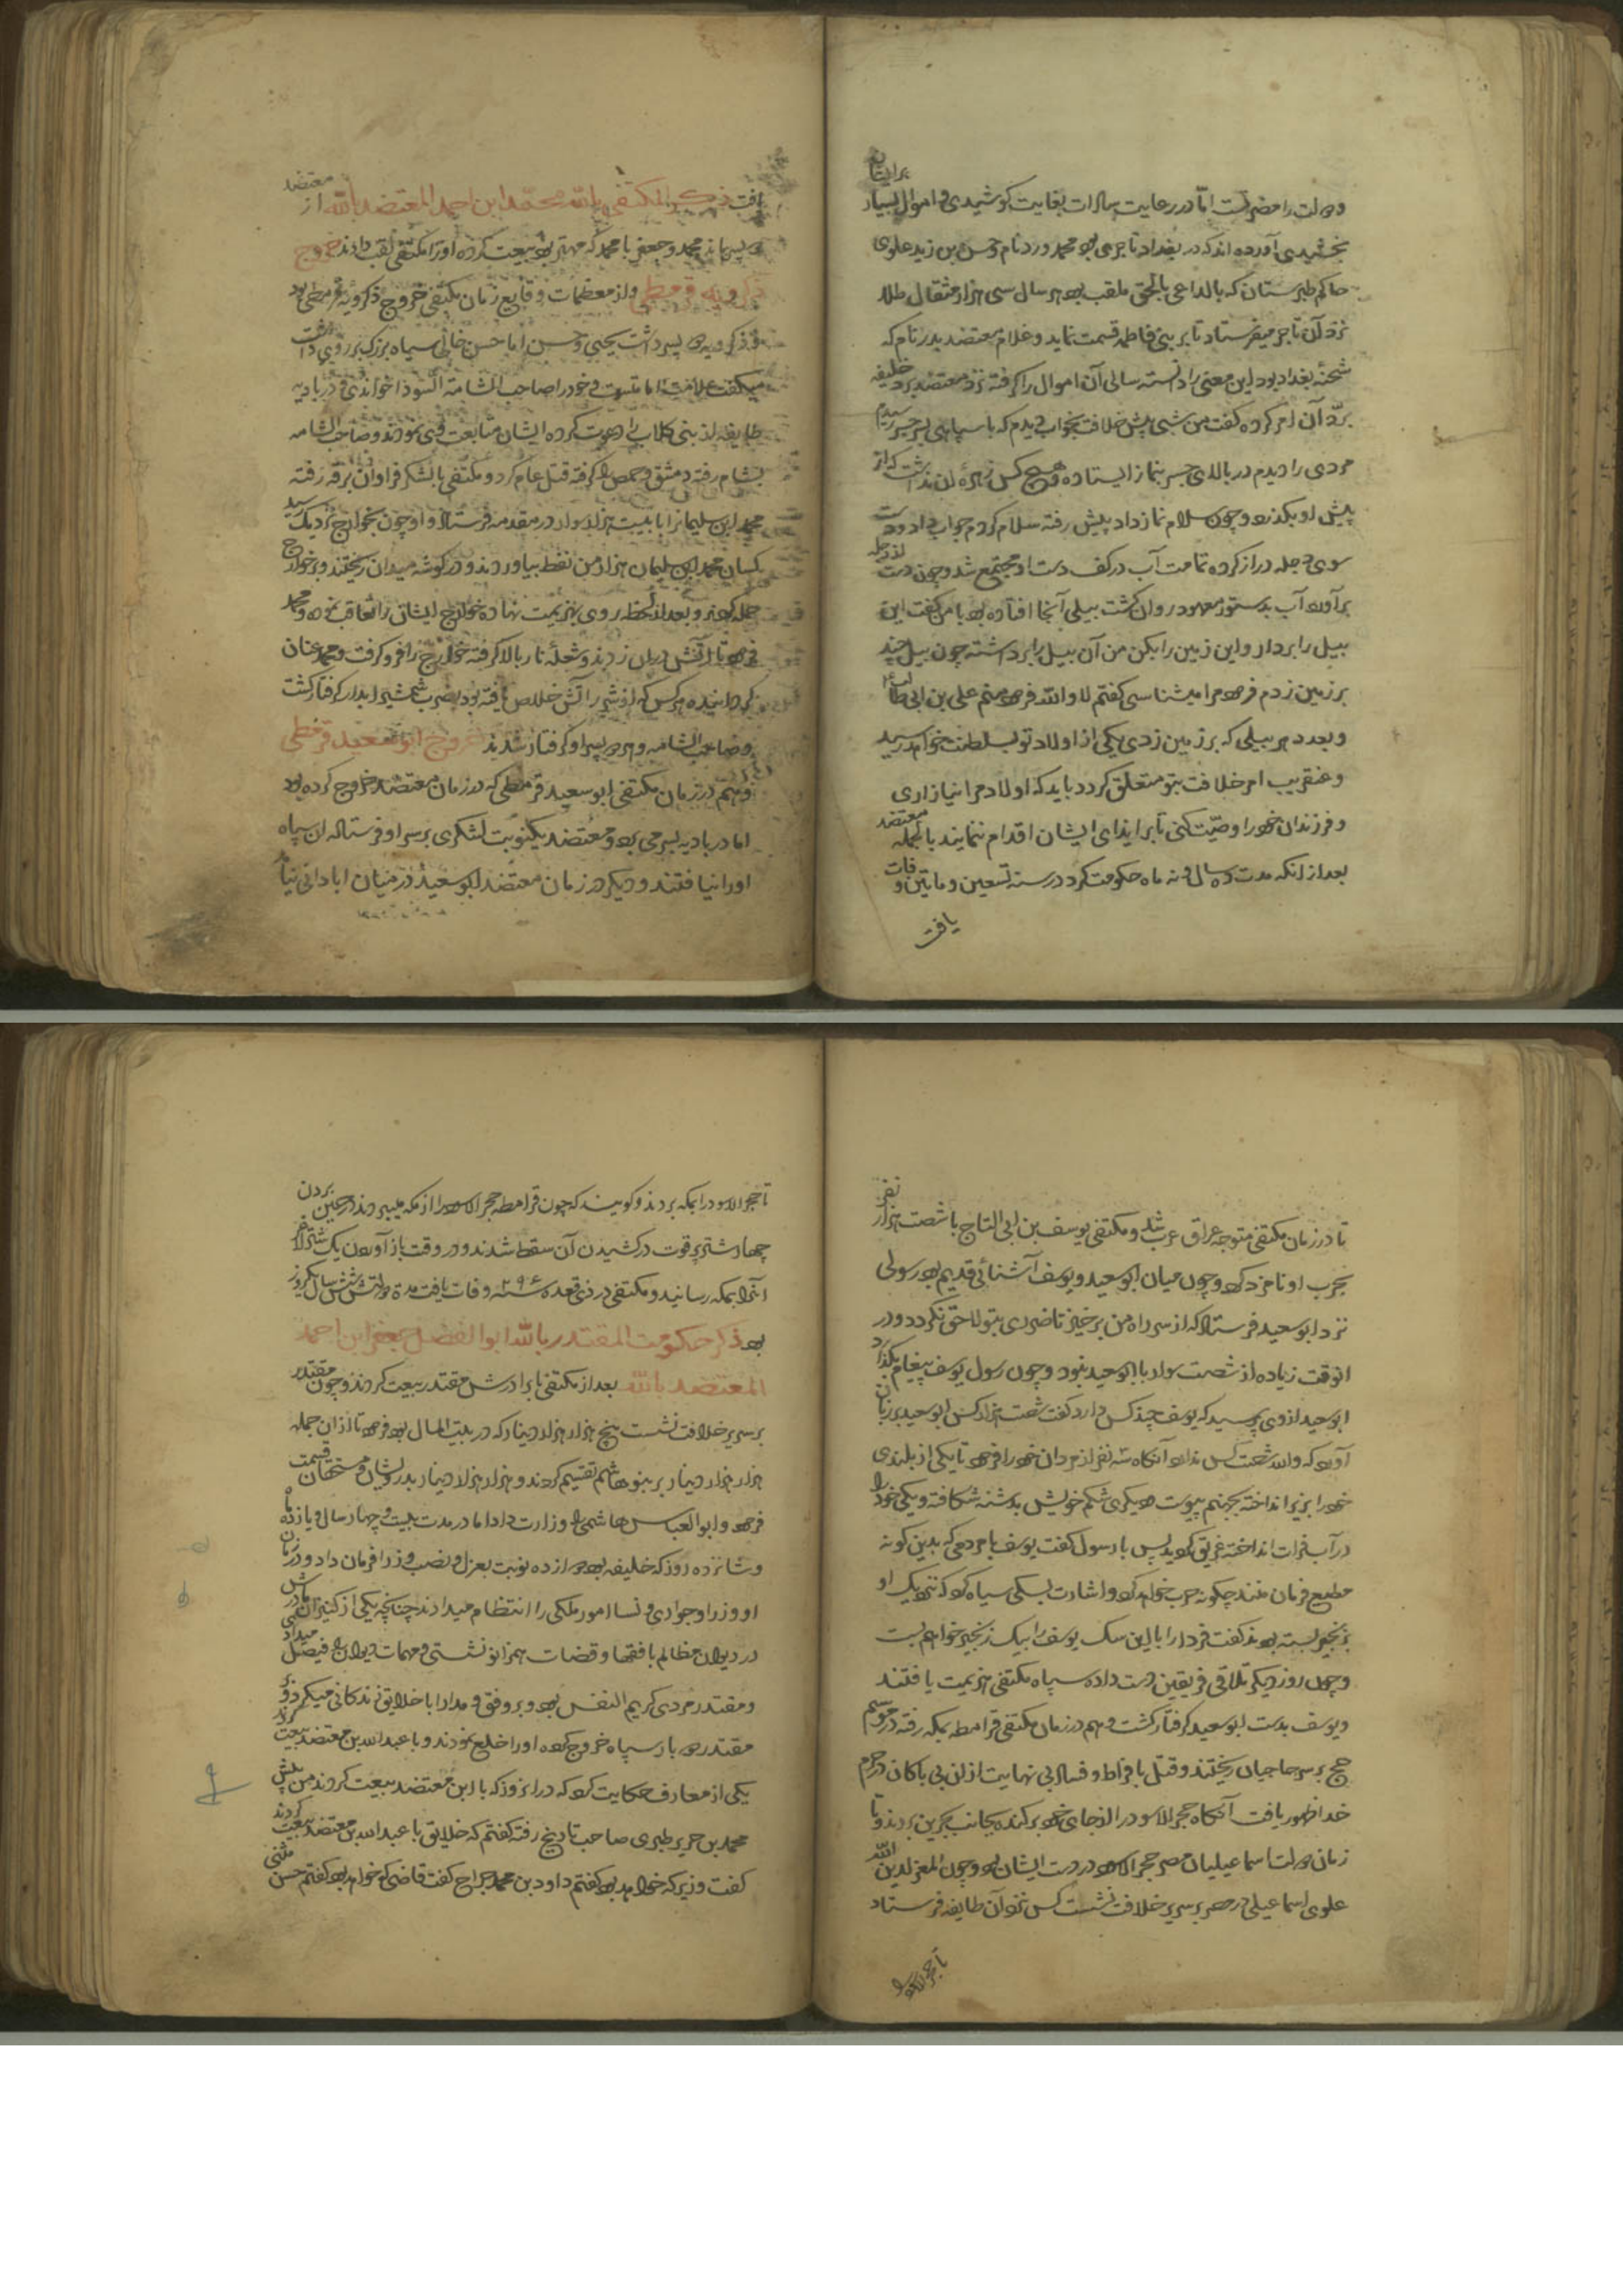 برایشان
دولت را مضر تست اما در رعایت سادات بغایت کوشیدی و اموال بسیار
بخشیدی آورده اند که در بغداد تاجری بود محمد ورد نام و حسن بن زید علوی
حاکم طبرستان که بالداعی بالحق ملقب بود هر سال سی هزار مثقال طلا
نزد آن تاجر میفرستاد تا بر بنی فاطمه قسمت نماید و غلام معتضد بدر نام که
شحنهٔ بغداد بود این معنی را دانسته سالی آن اموال را گرفته نزد معتضد برد خلیفه
برد آن امر کرده گفت من شبی پیش خلافت بخواب دیدم که با سپاهی بسر جسر رسیدم
مردی را دیدم در بالای جسر بنماز ایستاده و هیچ کس زهرهٔ آن نداشت که از
پیش او بگذرد و چون سلام نماز داد پیش رفته سلام کردم جواب داد و دست
سوی دجله دراز کرده تمامت آب در کف دست او مجتمع شد و چون دست از دجله
برآورد آب بدستور معهود روان گشت بیلی آنجا افتاده بود با من گفت این
بیل را بردار و این زمین را بکن من آن بیل را برداشته چون بیل چند
بر زمین زدم فرمود مرا میشناسی گفتم لا والله فرمود منم علی بن ابی طالب
و بعدد هر بیلی که بر زمین زدی یکی از اولاد تو بسلطنت خواهد رسید
و عنقریب امر خلافت بتو متعلق گردد باید که اولاد مرا نیازاری
و فرزندان خود را وصیت کنی تا بر ایذای ایشان اقدام ننمایند بالجمله معتضد
بعد از آنکه مدت ده سال و نه ماه حکومت کرد در سنه تسعین و ماتین وفات
یافت
یافت ذکر المکتفی بالله محمد ابن احمد المعتضد بالله از معتضد
دو پسر ماند محمد و جعفر با محمد که مهتر بود بیعت کرده او را مکتفی لقب دادند خروج
ذکرویه قرمطی و از معظمات وقایع زمان مکتفی خروج ذکرویه قرمطی بود
و ذکرویه دو پسر داشت یحیی و حسن اما حسن خالی سیاه بزرگ بر روی داشت
میگفت علامت امامتست و خود را صاحب الشامة السودا خواندی و در بادیه
طایفه از بنی کلاب را دعوت کرده ایشان متابعت وی نمودند و صاحب الشامه
بشام رفته دمشق و حمص را گرفته قتل عام کرد و مکتفی با لشکر فراوان برقه رفته
محمد ابن سلیمانرا با بیست هزار سوار در مقدمه فرستاد و او چون بخوارج نزدیک رسید
کسان محمد ابن سلیمان هزار من نفط بیاوردند و در گوشه میدان ریختند و بر خوارج
حمله کردند و بعد از لحظه روی بهزیمت نهاده خوارج ایشان را تعاقب نمود و محمد
فرمود تا آتش دران زدند و شعلهٔ نار بالا گرفته خوارج را فرو گرفت و محمد عنان
گردانیده هر کس که از شر آتش خلاص یافته بود بضرب شمشیر ابدار گرفتار گشت
و صاحب الشامه و هر دو پسر او گرفتار شدند خروج ابو سعید قرمطی
و هم در زمان مکتفی ابو سعید قرمطی که در زمان معتضد خروج کرده بود
اما در بادیه بسر می برد و معتضد یکنوبت لشکری بر سر او فرستاد ان سپاه
او را نیافتند و دیگر در زمان معتضد ابو سعید در میان ابادانی نیا
تا در زمان مکتفی متوجه عراق عرب شد و مکتفی یوسف بن ابی الساج با شصت هزار نفر
بحرب او نامزد کرد و چون میان ابو سعید و یوسف آشنائی قدیم بود رسولی
نزد ابو سعید فرستاد که از سر راه من برخیز تا ضرری بتو لاحق نگردد و در
انوقت زیاده از شصت سوار با ابو سعید نبود و چون رسول یوسف پیغام بگذارد
ابو سعید از وی پرسید که یوسف چند کس دارد گفت شصت هزار کس ابو سعید بر زبان
آورد که والله شصت کس ندارد آنگاه سه نفر از مردان خود را فرمود تا یکی از بلندی
خود را بزیر انداخته بجهنم پیوست و دیگری شکم خویش بدشنه شکافته و یکی خود را
در آب فرات انداخته غریق گردید پس با رسول گفت یوسف با مردمی که بدین گونه
مطیع فرمان منند چگونه حرب خواهد کرد و اشارت بسگی سیاه کرد که نزدیک او
بزنجیر بسته بودند گفت فردا او را با این سگ یوسف را بیک زنجیر خواهم بست
و چون روز دیگر تلاقی فریقین دست داده سپاه مکتفی هزیمت یافتند
و یوسف بدست ابو سعید گرفتار گشت و هم در زمان مکتفی قرامطه بمکه رفته در موسم
حج بر سر حاجیان ریختند و قتل بافراط و فساد بی نهایت از ان بی باکان در حرم
خدا ظهور یافت آنگاه حجر الاسود را از جای خود برکنده بجانب بحرین بردند و تا
زمان دولت اسماعیلیان مصر حجر الاسود در دست ایشان بود و چون المعز لدین الله
علوی اسماعیلی در مصر بر سریر خلافت نشست کس نزد آن طایفه فرستاد
تا حجر الاسود
تا حجر الاسود را بمکه بردند و گویند که چون قرامطه حجر الاسود را از مکه میبردند در حین بردن
چهار شتر پر قوت در کشیدن آن سقط شدند و در وقت باز آوردن یک شتر لاغر
آنرا بمکه رسانید و مکتفی در ذی قعده سنه ۲۹۶ وفات یافت مدة دولتش شش سال و یکروز
بود ذکر حکومت المقتدر بالله ابو الفضل جعفر ابن احمد
المعتضد بالله بعد از مکتفی با برادرش مقتدر بیعت کردند و چون مقتدر
بر سریر خلافت نشست پنج هزار هزار دینار که در بیت المال بود فرمود تا از ان جمله
هزار هزار دینار بر بنو هاشم تقسیم کردند و هزار هزار دینار بدرویشان و مستحقان قسمت
فرمود و ابو العباس هاشمی را وزارت داد اما در مدت بیست و چهار سال و یازده ماه
و شانزده روز که خلیفه بود دوازده نوبت بعزل و نصب وزرا فرمان داد و در زمان
او وزرا و جواری و نسا امور ملکی را انتظام میدادند چنانچه یکی از کنیزان مادرش
در دیوان مظالم با فقها و قضات همزانو نشستی و مهمات دیوان را فیصل میداد
و مقتدر مردی کریم النفس بود و بر وفق و مدارا با خلایق زندگانی میکرد و بر
مقتدر دو بار سپاه خروج کرده او را خلع نمودند و با عبد الله بن معتضد بیعت کردند
یکی از معارف حکایت کرد که در انروز که با ابن معتضد بیعت کردند من پیش
محمد بن جریر طبری صاحب تاریخ رفته گفتم که خلایق با عبد الله بن معتضد بیعت کردند
گفت وزیر که خواهد بود گفتم داود بن محمد جراح گفت قاضی که خواهد بود گفتم حسن مثنی